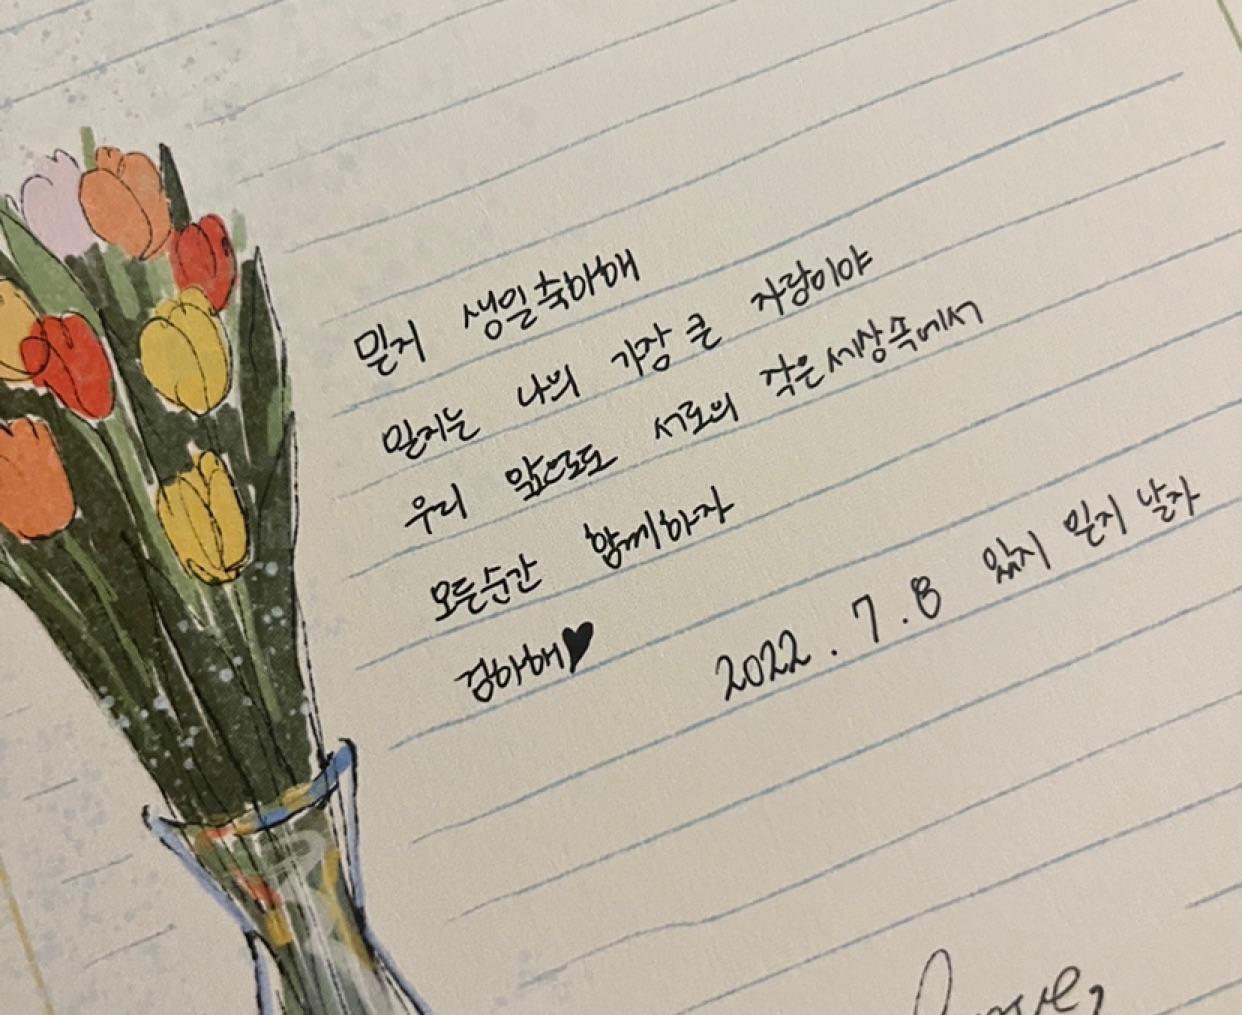 민지 생일축하해
민지는 나의 가장 큰 자랑이야
우리 앞으로도 서로의 작은세상속에서
모든순간 함께하자
2022.7.8 민지 날자